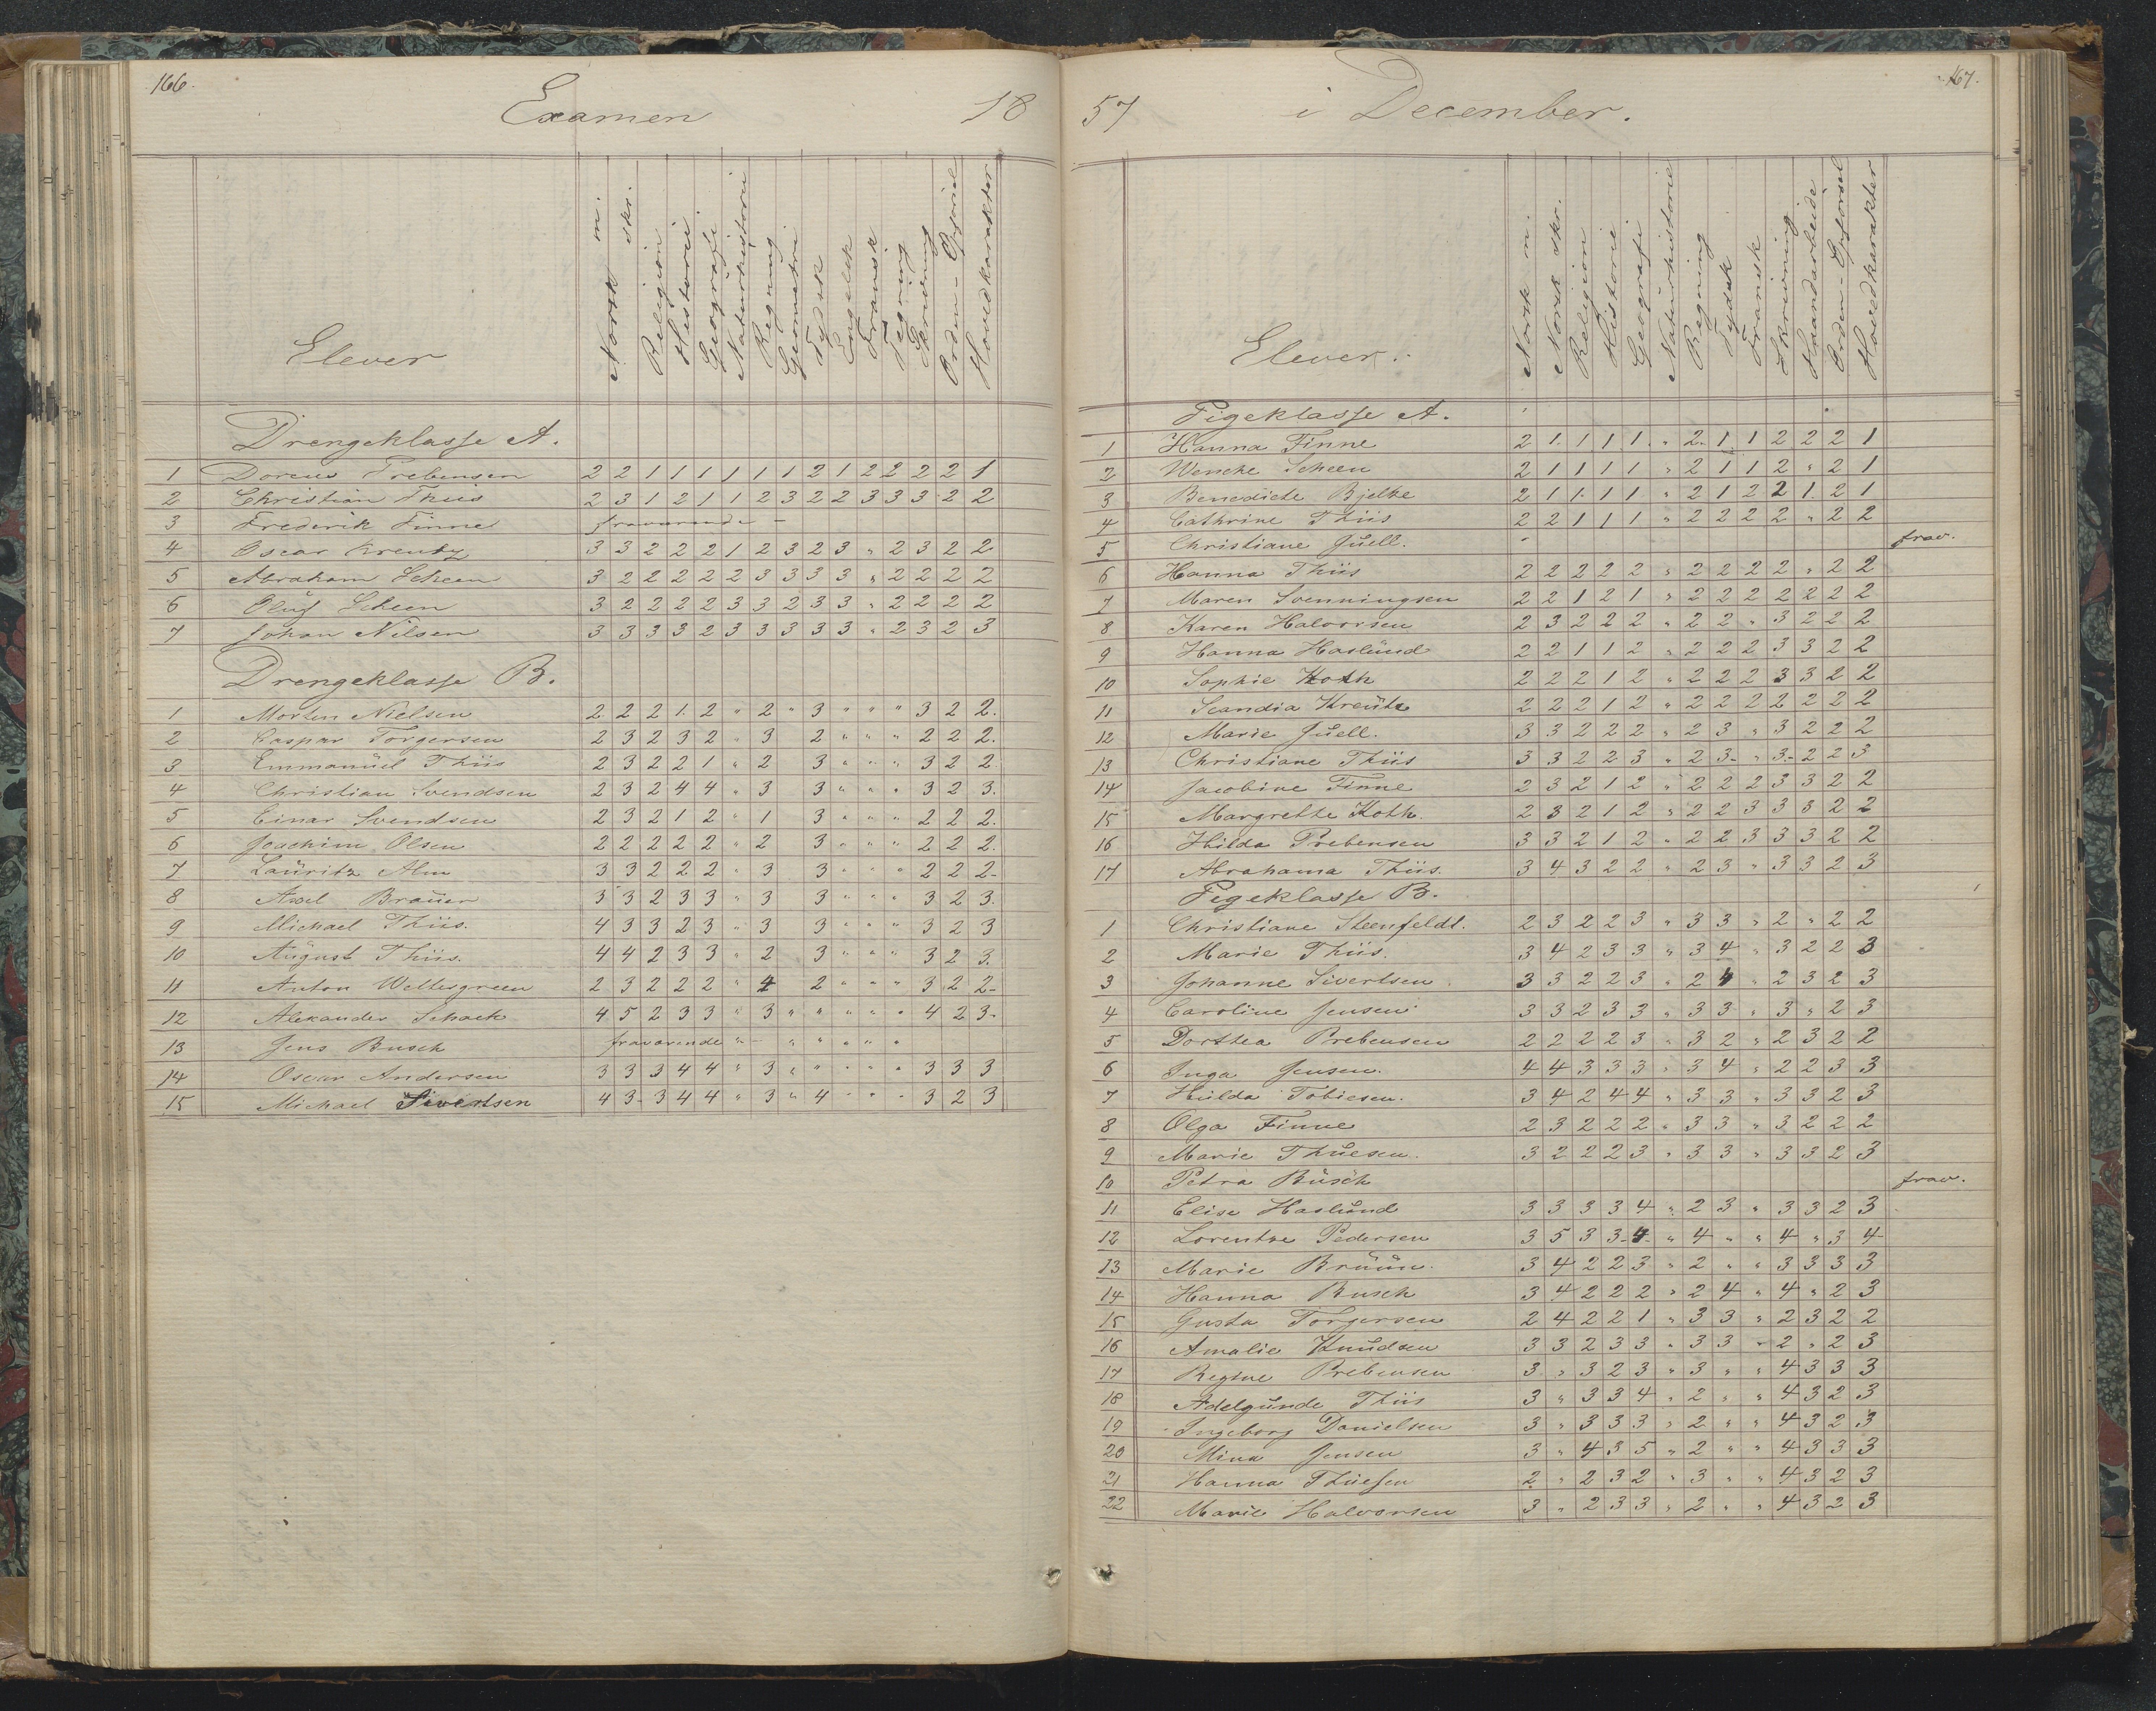 166.
Examen 18
Elever Norsk m. skr. Religion Historie Geografi Naturhistorie Regning Geometri Tydsk Engelsk Fransk Tegning Skrivning Orden-Opførsel Hovedkarakter
Drengeklasse A.
1 Dorcus Prebensen 2 2 1 1 1 1 1 1 2 1 2 2 2 2 1
2 Christian Thiis 2 3 1 2 1 1 2 3 2 2 3 3 3 2 2
3 Frederik Finne fraværende -
4 Oscar Kreutz 3 3 2 2 2 1 2 3 2 3 " 2 3 2 2
5 Abraham Scheen 3 2 2 2 2 2 3 3 3 3 " 2 2 2 2
6 Oluf Scheen 3 2 2 2 2 3 3 2 3 3 " 2 2 2 2
7 Johan Nilsen 3 3 3 3 2 3 3 3 3 3 " 2 3 2 3
Drengeklasse B.
1 Morten Nielsen 2 2 2 1. 2 " 2 " 3 " " " 3 2 2.
2 Caspar Torgersen 2 3 2 3 2 " 3 2 " " " 2 2 2.
3 Emmanuel Thiis 2 3 2 2 1 " 2 3 " " " 3 2 2
4 Christian Svendsen 2 3 2 4 4 " 3 3 " " " 3 2 3.
5 Einar Svendsen 2 3 2 1 2 " 1 3 " " " 2 2 2.
6 Joachim Olsen 2 2 2 2 2 " 2 3 " " " 2 2 2.
7 Lauritz Alm 3 3 2 2 2 " 3 3 " " " 2 2 2-
8 Axel Brauer 3 3 2 3 3 " 3 3 " " " 3 2 3.
9 Michael Thiis. 4 3 3 2 3 " 3 3 " " " 3 2 3
10 August Thiis. 4 4 2 3 3 " 2 3 " " " 3 2 3.
11 Anton Weltesgreen 2 3 2 2 2 " 4 2 " " " 3 2 2-
12 Alexander Schack 4 5 2 3 3 " 3 " " " " " 4 2 3-
13 Jens Busch fraværende " - " " " " "
14 Oscar Andersen 3 3 3 4 4 " 3 " " " " " 3 3 3
15 Michael Sivertsen 4 3- 3 4 4 " 3 " 4 " " " 3 2 3
167.
57 i December.
Elever. Norsk m. Norsk skr. Religion Historie Geografi Naturhistorie Regning Tydsk Fransk Skrivning Haandarbeide Orden-Opførsel Hovedkarakter
Pigeklasse A.
1 Hanna Finne 2 1. 1 1 1. " 2. 1 1 2 2 2 1
2 Wencke Scheen 2 1 1 1 1 " 2 1 1 2 " 2 1
3 Benedicte Bjelke 2 1 1. 1 1 " 2 1 2 2 1. 2 1
4 Cathrine Thiis 2 2 1 1 1 " 2 2 2 2 " 2 2
5 Christiane Juell. frav.
6 Hanna Thiis 2 2 2 2 2 " 2 2 2 2 " 2 2
7 Maren Svenningsen 2 2 1 2 1 " 2 2 2 2 2 2 2
8 Karen Halvorsen 2 3 2 2 2 " 2 2 " 3 2 2 2
9 Hanna Haslund 2 2 1 1 2 " 2 2 2 3 3 2 2
10 Sophie Koth 2 2 2 1 2 " 2 2 2 3 3 2 2
11 Scandia Kreutz 2 2 2 1 2 " 2 2 2 2 2 2 2
12 Marie Juell. 3 3 2 2 2 " 2 3 " 3 2 2 2
13 Christiane Thiis 3 3 2 2 3 " 2 3- " 3- 2 2 3
14 Jacobine Finne 2 3 2 1 2 " 2 2 2 3 3 2 2
15 Margrethe Koth. 2 3 2 1 2 " 2 2 3 3 3 2 2
16 Hilda Prebensen 3 3 2 1 2 " 2 2 3 3 3 2 2
17 Abrahama Thiis. 3 4 3 2 2 " 2 3 " 3 3 2 3
Pigeklasse B.
1 Christiane Steenfeldt. 2 3 2 2 3 " 3 3 " 2 " 2 2
2 Marie Thiis. 3 4 2 3 3 " 3 4 " 3 2 2 3
3 Johanne Sivertsen 3 3 2 2 3 " 2 4 " 2 3 2 3
4 Caroline Jensen 3 3 2 3 3 " 3 3 " 3 " 2 3
5 Dorthea Prebensen 2 2 2 2 3 " 3 2 " 2 3 2 2
6 Inga Jensen. 4 4 3 3 3 " 3 4 " 2 2 3 3
7 Hulda Tobiesen. 3 4 2 4 4 " 3 3 " 3 3 2 3
8 Olga Finne 2 3 2 2 2 " 3 3 " 3 2 2 2
9 Marie Thuesen. 3 2 2 2 3 " 3 3 " 3 3 2 3
10 Petra Busch frav.
11 Elise Haslund 3 3 3 3 4 " 2 3 " 3 3 2 3
12 Lorentze Pedersen 3 5 3 3- 4- " 4 " " 4 " 3 4-
13 Marie Bruun. 3 4 2 2 3 " 2 " " 3 3 3 3
14 Hanna Busch 3 4 2 2 2 " 2 4 " 4 " 2 3
15 Gusta Torgersen 2 4 2 2 1 " 3 3 " 2 3 2 2
16 Amalie Knudsen 3 3 2 3 3 " 3 3 " 2 " 2 3
17 Regine Prebensen 3 " 3 2 3 " 3 " " 4 3 3 3
18 Adelgunde Thiis 3 " 3 3 4 " 2 " " 4 3 2 3
19 Ingeborg Danielsen 3 " 3 3 3 " 2 " " 4 3 2 3
20 Mina Jensen 3 " 4 3 5 " 2 " " 4 3 3 3
21 Hanna Thuesen 2 " 2 3 2 " 3 " " 4 3 2 3
22 Marie Halvorsen 3 " 2 3 3 " 2 " " 4 3 2 3